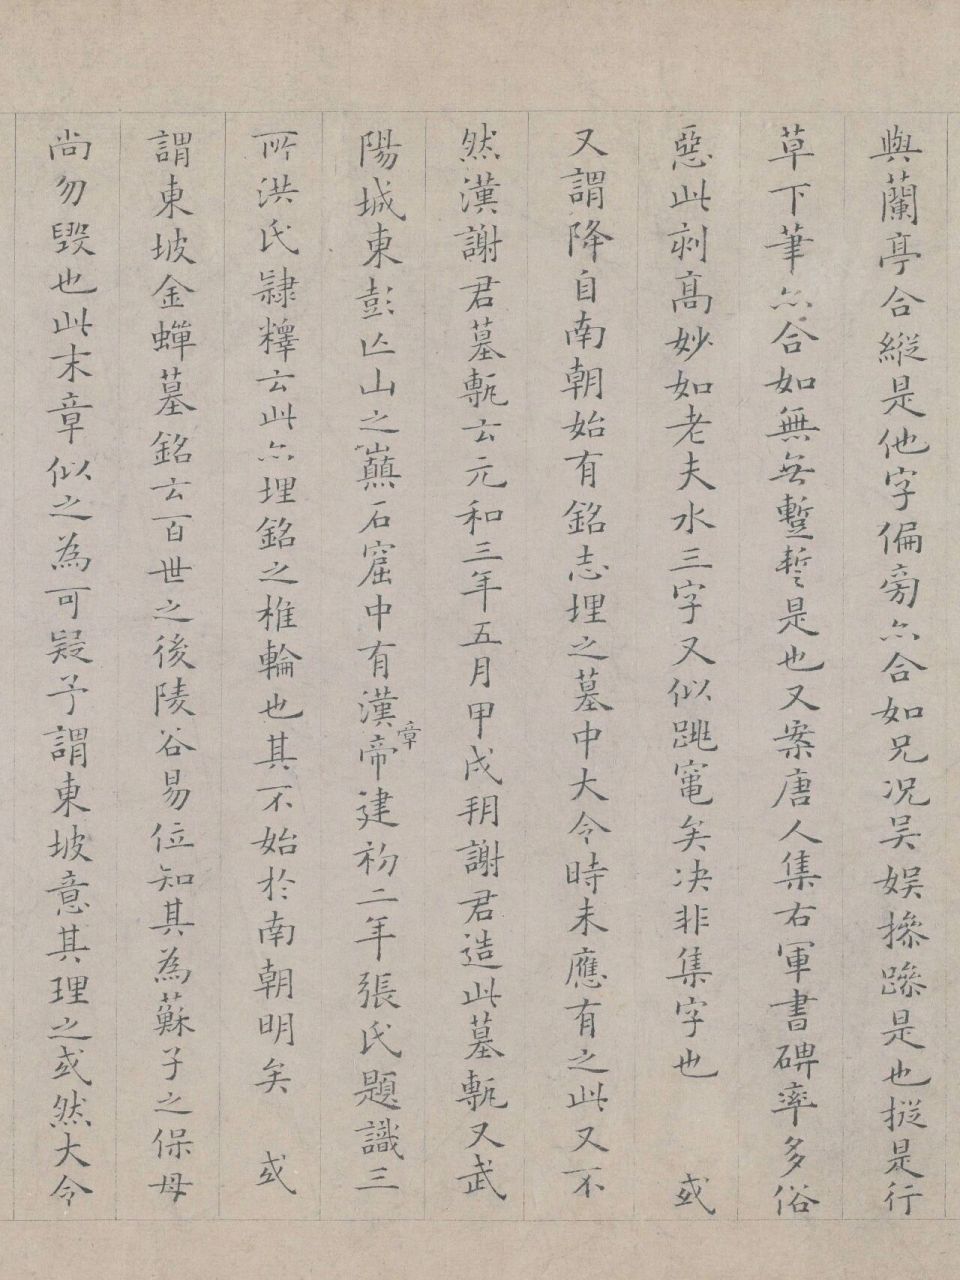 與蘭亭合縱是他字偏旁亦合如兄况吴娱摻蹨是也摐是行
草下筆亦合如無㤀蹔誓是也又案唐人集右軍書碑率多俗
惡此刻髙妙如老夫水三字又似跳竃矣决非集字也 或
又謂降自南朝始有銘志埋之墓中大令時未應有之此又不
然漢謝君墓甎云元和三年五月甲戌朔謝君造此墓甎又武
陽城東彭亾山之巔石窟中有漢章帝建初二年張氏題識三
所洪氏隷釋云此亦埋銘之椎輪也其不始於南朝明矣 或
謂東坡金蟬墓銘云百世之後陵谷易位知其為蘇子之保母
尚勿毁也此末章似之為可疑予謂東坡意其理之或然大令